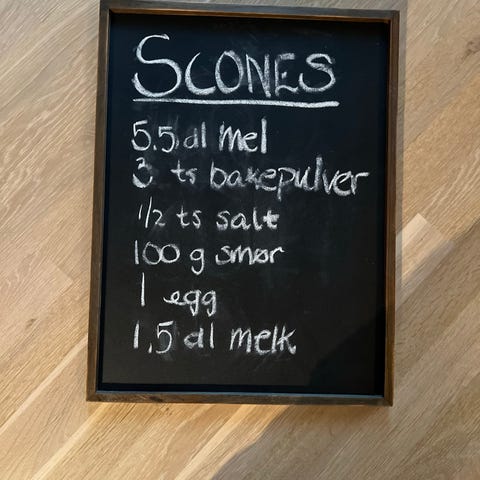 SCONES
5.5 dl mel
3 ts bakepulver
1/2 ts salt
100 g smør
1 egg
1.5 dl melk